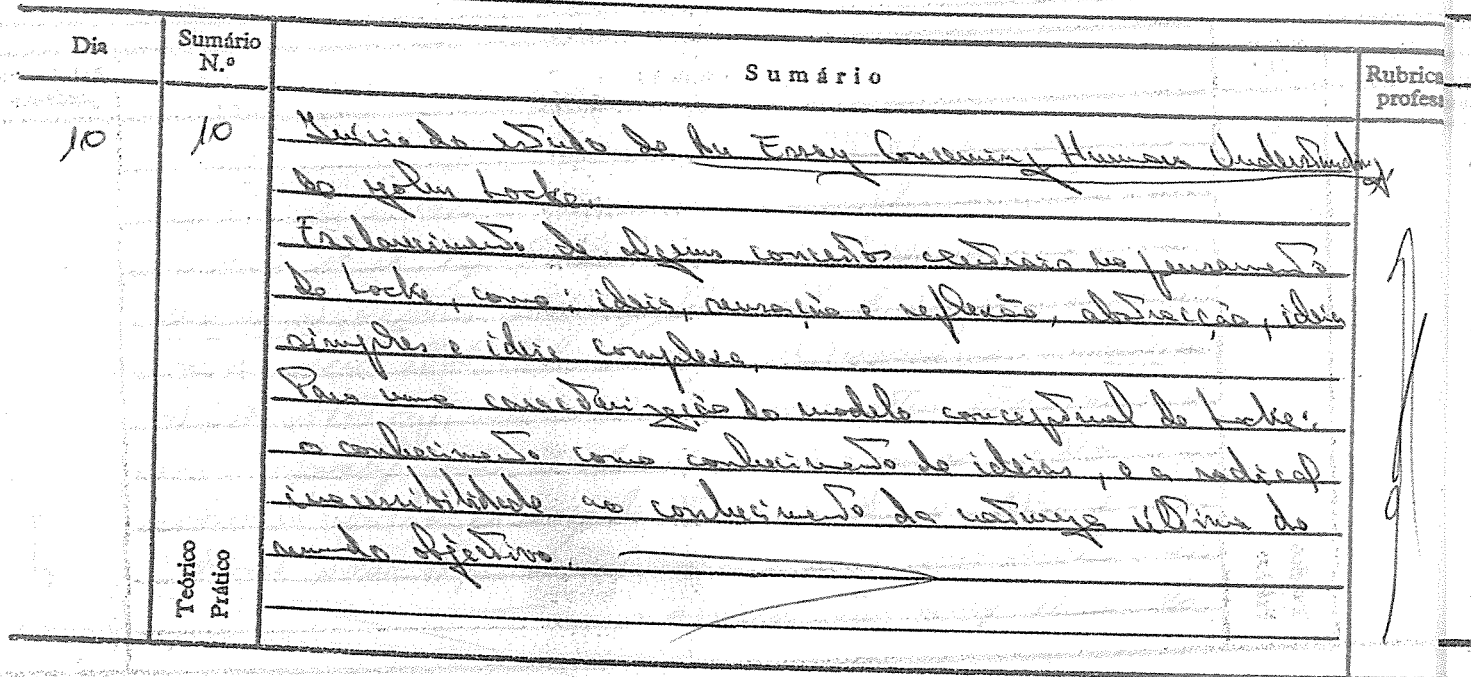 Dia
Sumário
N.º
Sumário
Rubrica
profess
10
10
Início do estudo do An Essay Concerning Human Understanding
de John Locke.
Esclarecimento de alguns conceitos centrais no pensamento
de Locke, como: ideia, sensação e reflexão, abstracção, ideia
simples e ideia complexa.
Para uma caracterização do modelo conceptual de Locke:
o conhecimento como conhecimento de ideias, e a radical
inacessibilidade ao conhecimento da natureza última do
mundo objectivo.
Teórico
Prático